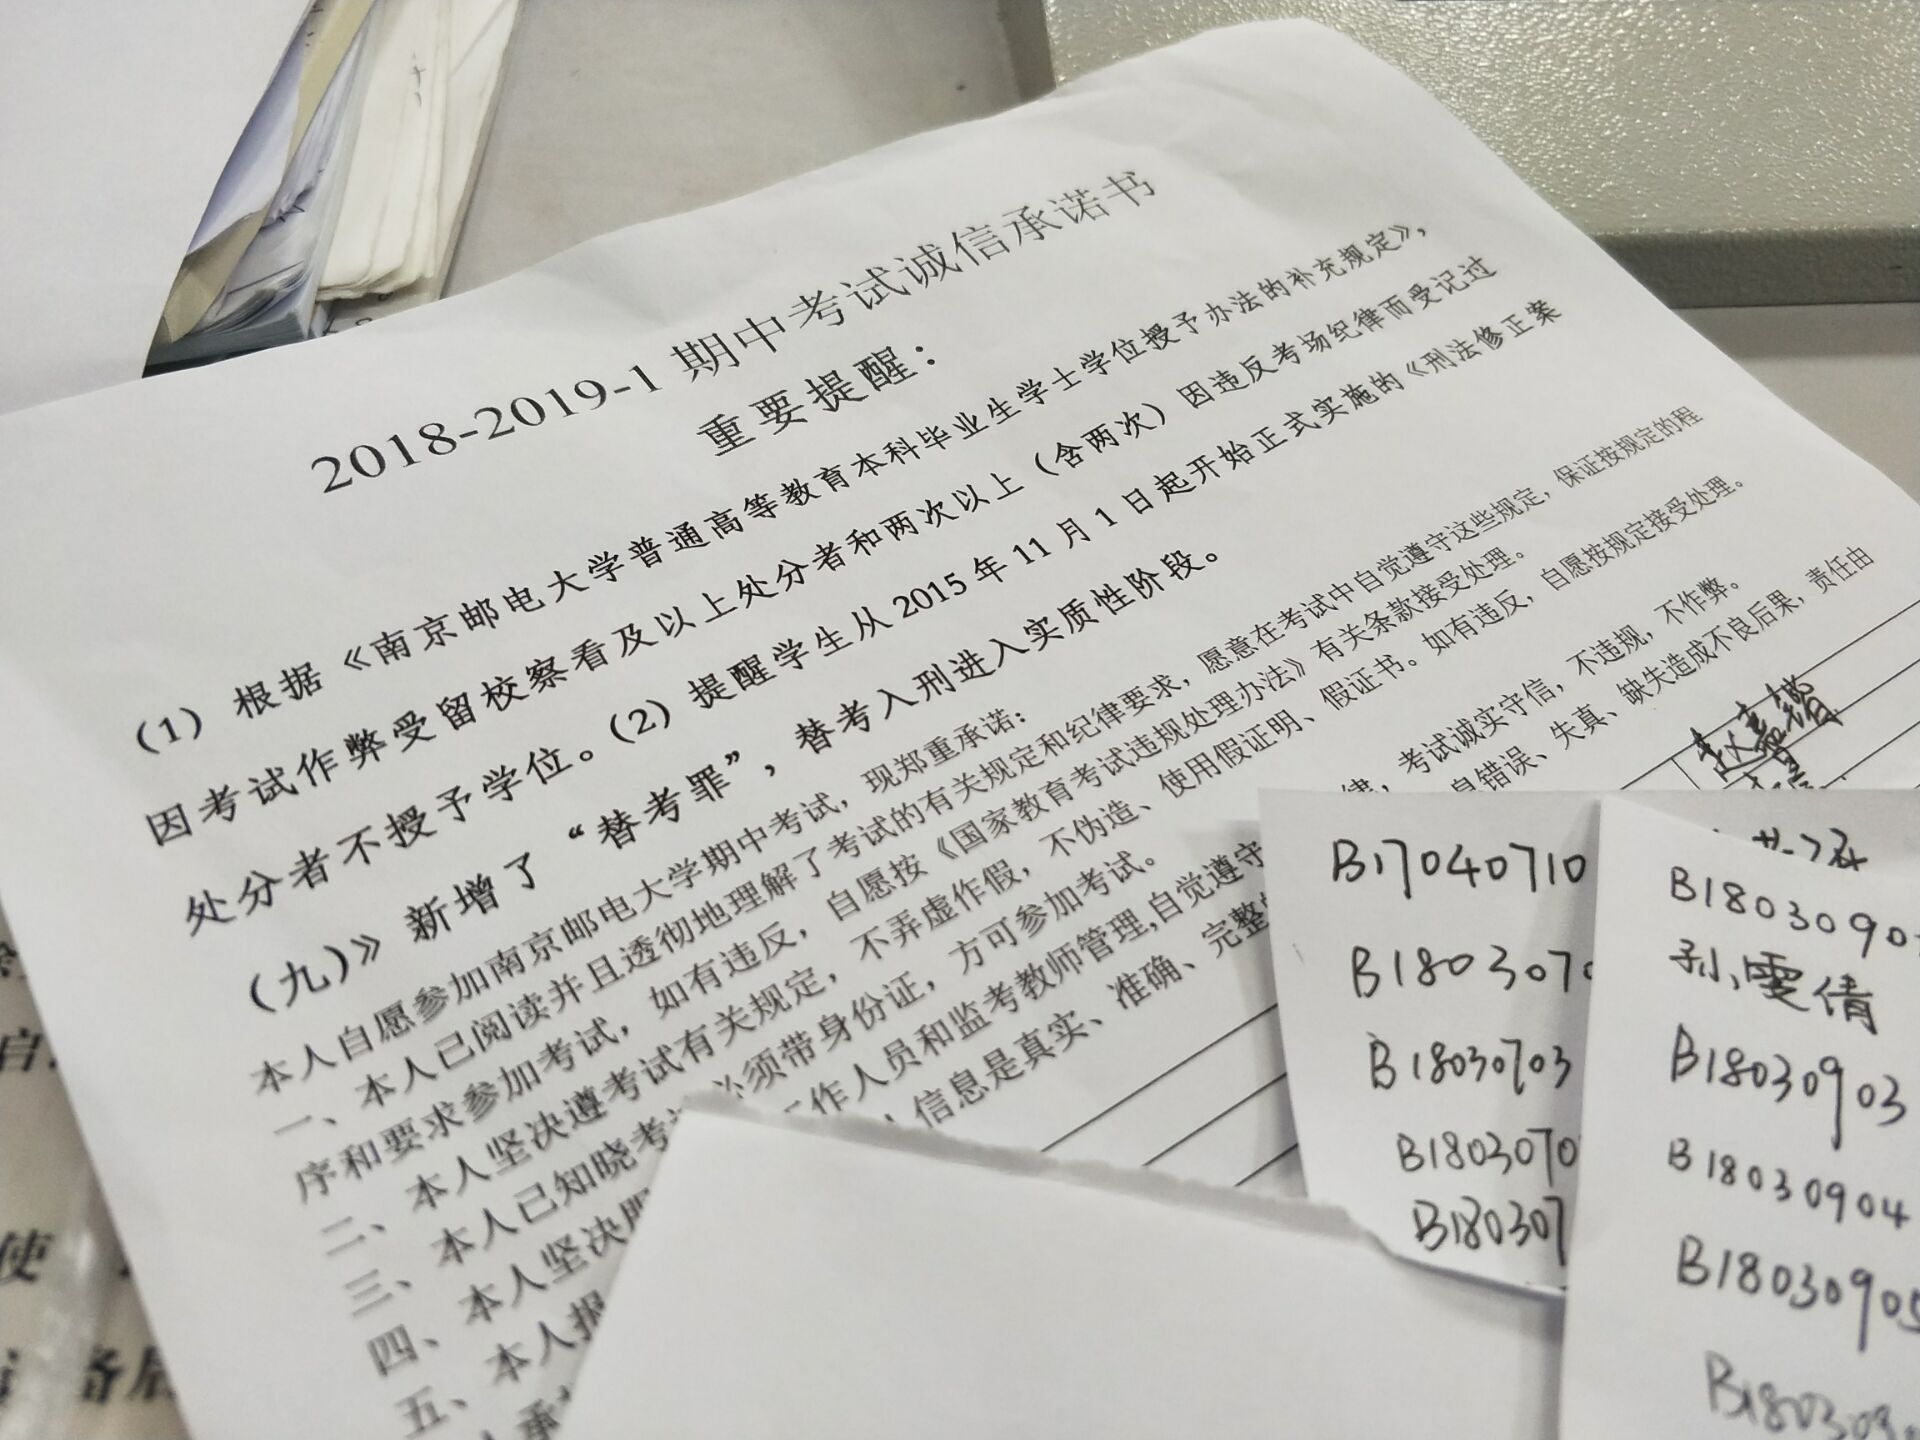 2018-2019-1 期中考试诚信承诺书
重要提醒：
（1）根据《南京邮电大学普通高等教育本科毕业生学士学位授予办法的补充规定》，
因考试作弊受留校察看及以上处分者和两次以上（含两次）因违反考场纪律而受记过
处分者不授予学位。（2）提醒学生从 2015 年 11 月 1 日起开始正式实施的《刑法修正案
（九）》新增了“替考罪”，替考入刑进入实质性阶段。
本人自愿参加南京邮电大学期中考试，现郑重承诺：
一、本人已阅读并且透彻地理解了考试的有关规定和纪律要求，愿意在考试中自觉遵守这些规定，保证按规定的程
序和要求参加考试，如有违反，自愿按《国家教育考试违规处理办法》有关条款接受处理。
二、本人坚决遵考试有关规定，不弄虚作假，不伪造、使用假证明、假证书。如有违反，自愿按规定接受处理。
三、本人已知晓考 必须带身份证，方可参加考试。
四、本人坚决 工作人员和监考教师管理,自觉遵守 律，考试诚实守信，不违规，不作弊。
五、本人报 信息是真实、准确、完整 息错误、失真、缺失造成不良后果，责任由
本人承
B17040710
B1803070
B18030703
B1803070
B180307
B1803090
孙雯倩
B18030903
B18030904
B18030905
B1803090
使
备